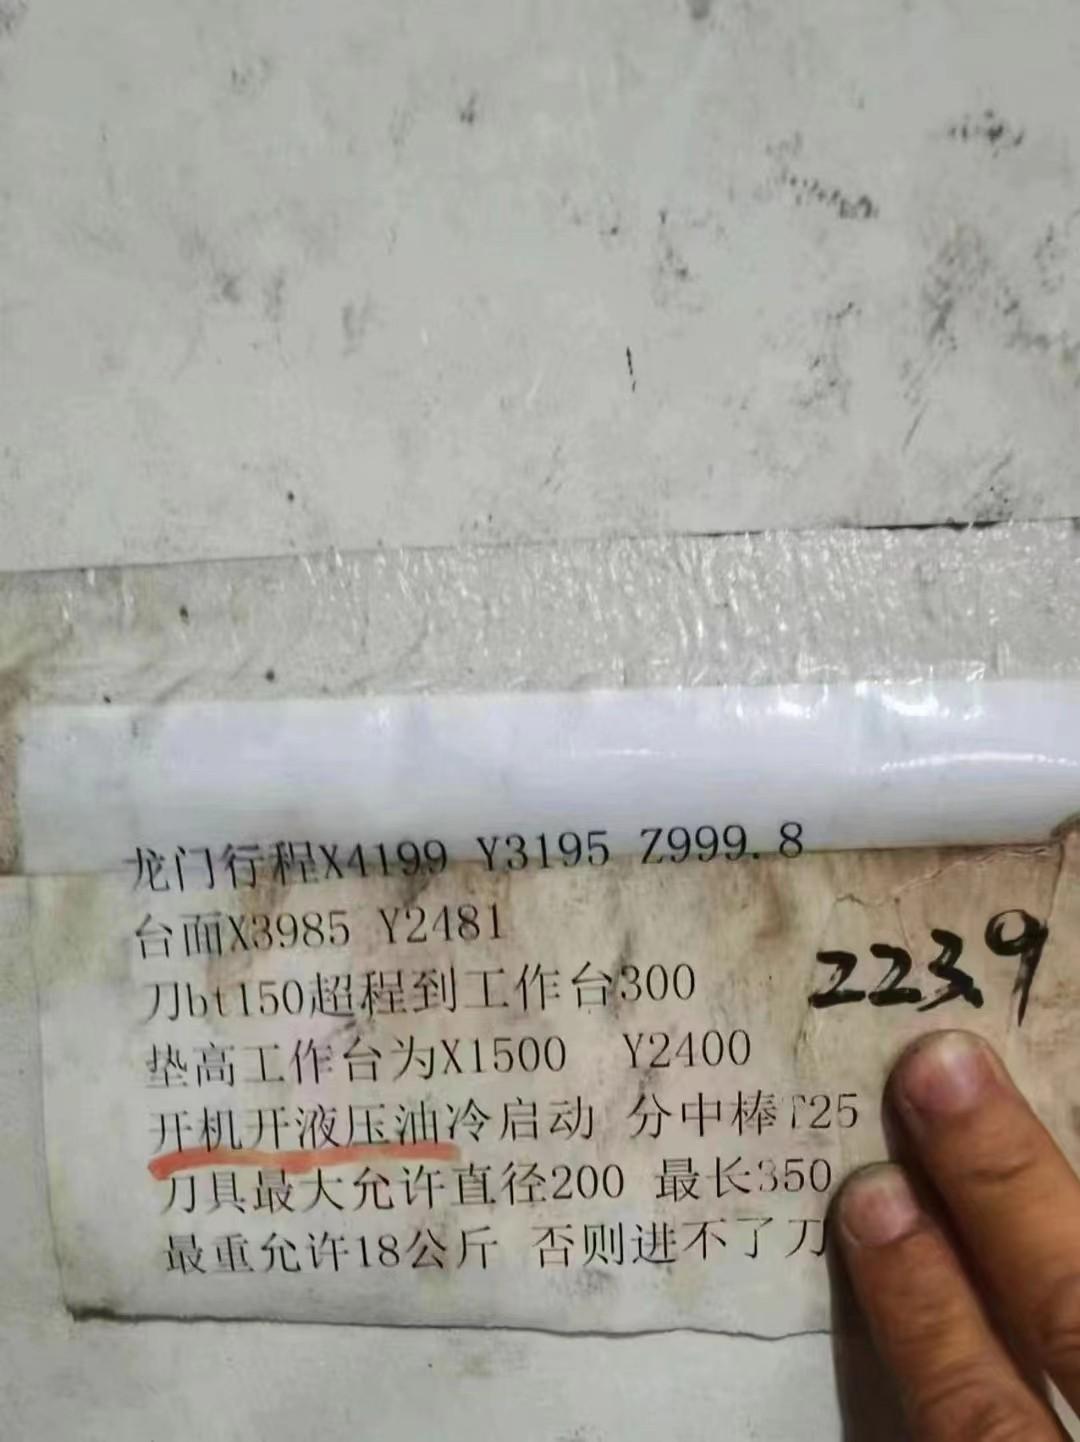 龙门行程X4199 Y3195 Z999.8
台面X3985 Y2481
刀bt150超程到工作台300
2239
垫高工作台为X1500 Y2400
开机开液压油冷启动 分中棒T25
刀具最大允许直径200 最长350
最重允许18公斤 否则进不了刀